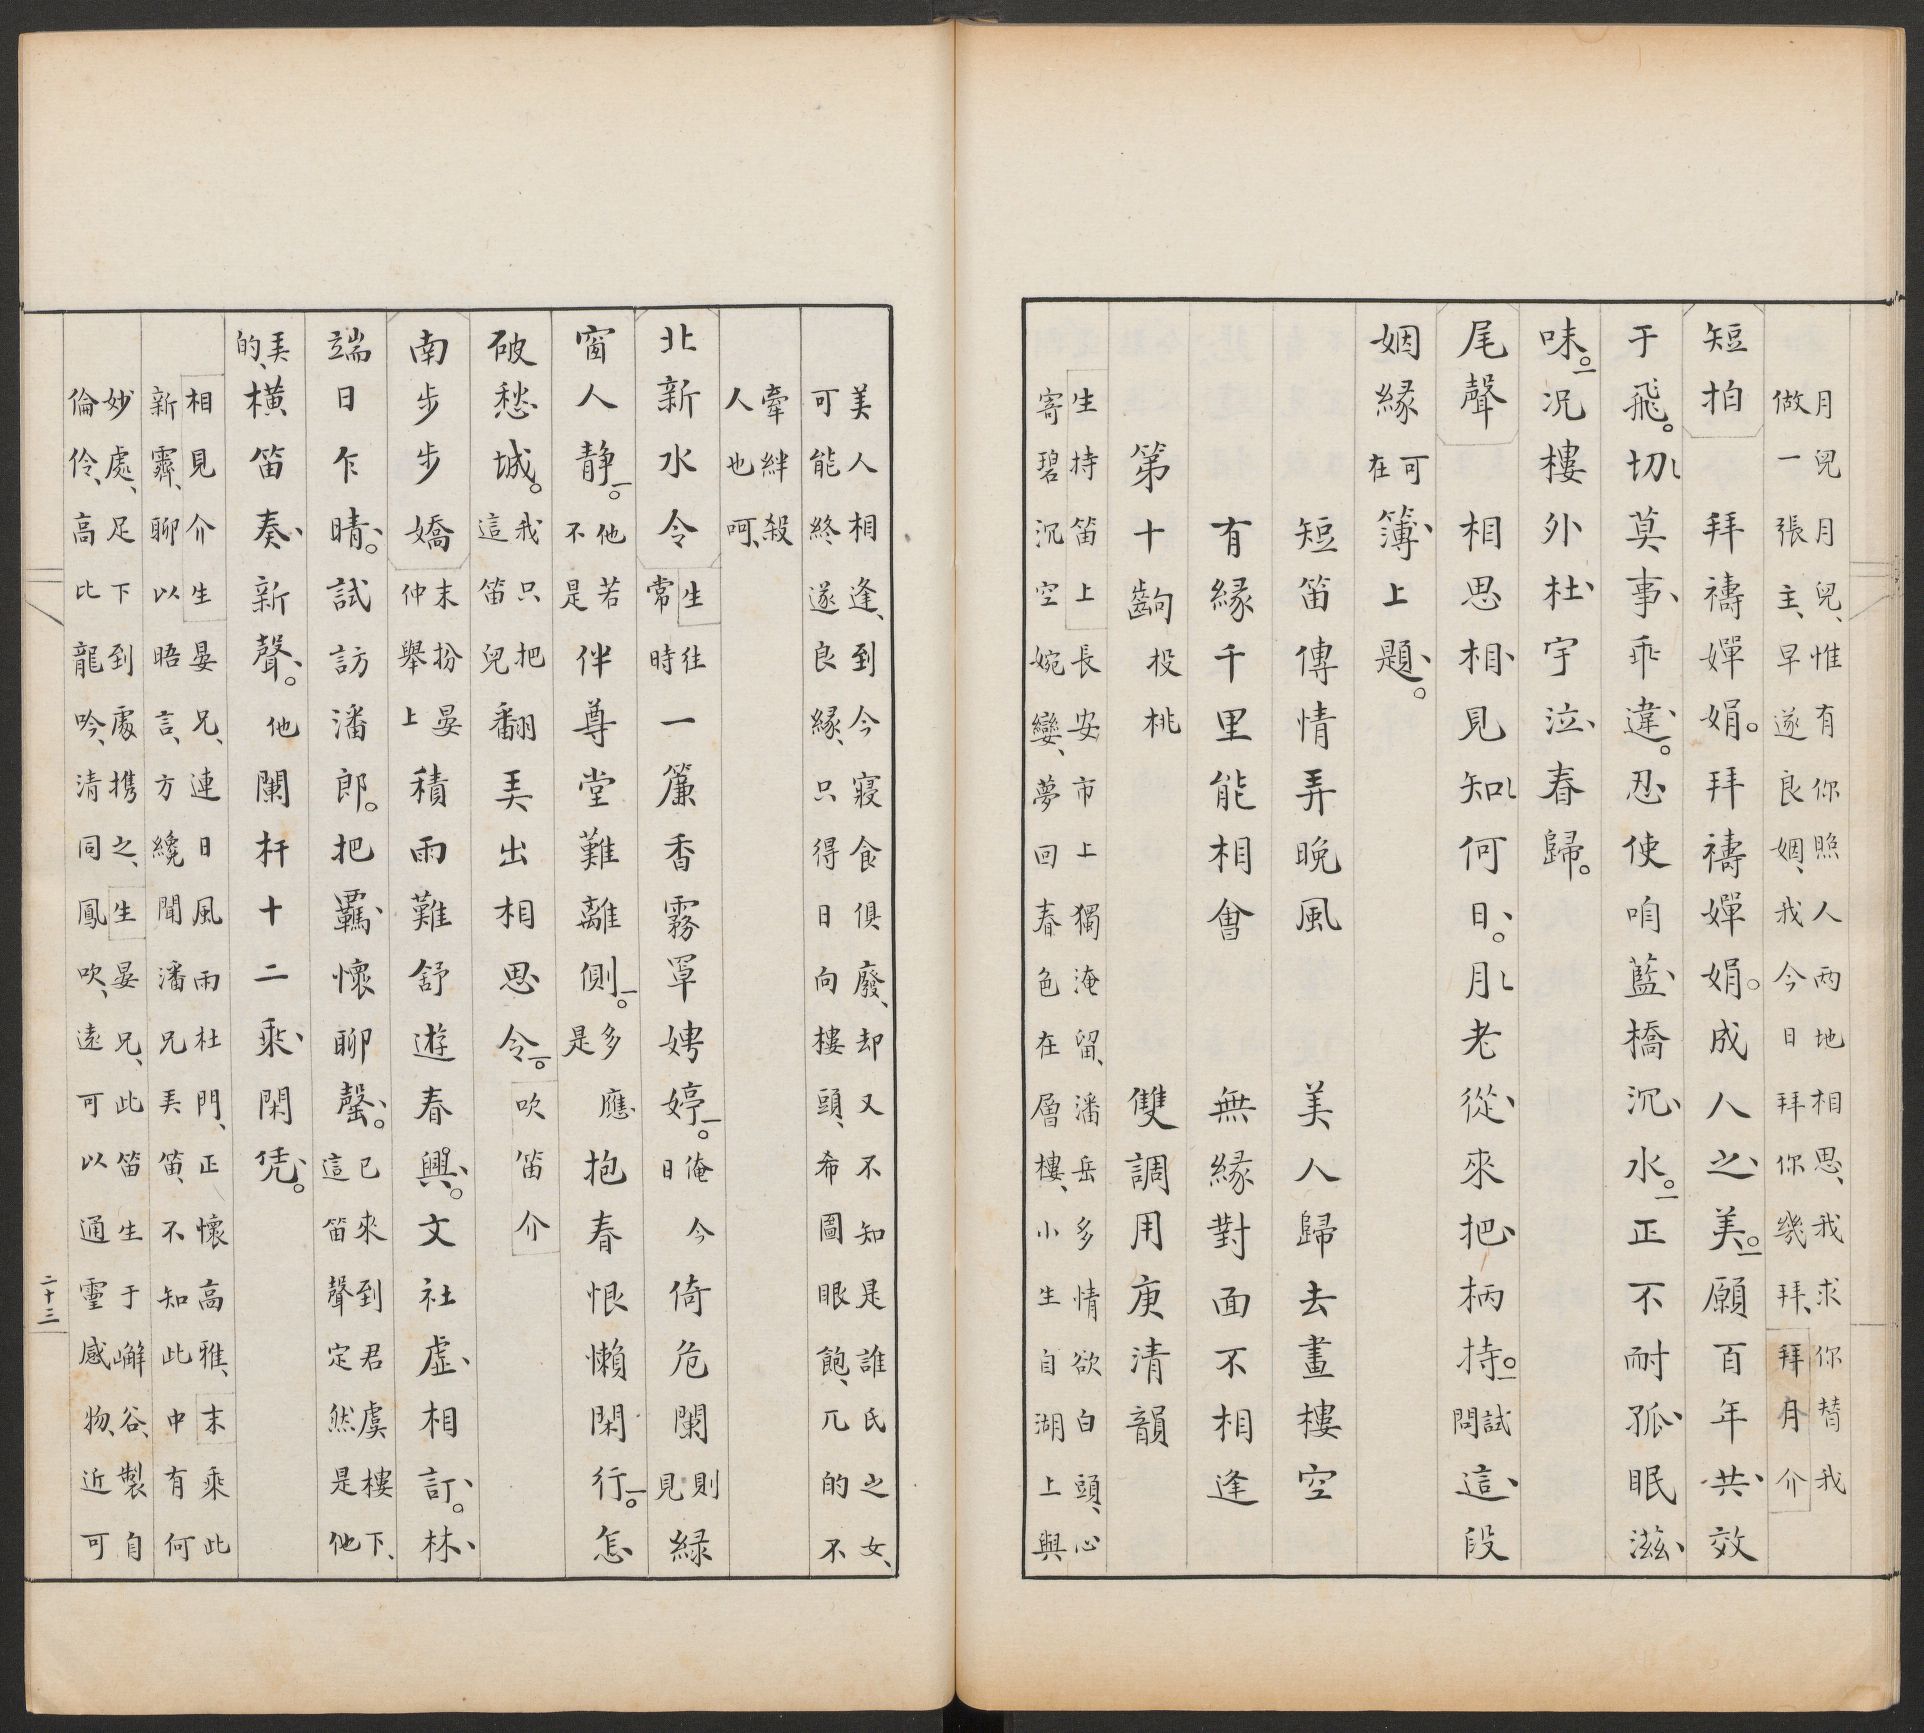 月兒月兒、惟有你照人兩地相思、我求你替我
做一張主、早遂良姻、我人今日拜你幾拜、拜月介
短拍　拜禱嬋娟。拜禱嬋娟。成人之美。願百年共效
于飛。切莫事乖違。忍使咱藍橋沉水。正不耐孤眠滋
味。況樓外杜宇泣春歸。
尾聲　相思相見知何日。月老從來把柄持。試問這段
姻緣可在簿上題。
短笛傳情弄晚風　美人歸去畫樓空
有緣千里能相會　無緣對面不相逢
第十齣投桃　雙調用庚清韻
生持笛上長安市上獨淹留、潘岳多情欲白頭、心
寄碧沉空婉孌、夢回春色在層樓、小生自湖上與
美人相逢、到今寢食俱廢、却又不知是誰氏之女、
可能終遂良緣、只得日向樓頭、希圖眼飽、兀的不
牽絆殺
人也呵、
北新水令　生往常時一簾香霧罩娉婷。俺今日倚危闌則見綠
窗人靜。他若不是伴尊堂難離側。多應是抱春恨懶閑行。怎
破愁城。我只把這笛兒翻美出相思令。吹笛介
南步步嬌　末扮晏仲舉上積雨難舒遊春興。文社虛相訂。林
端日乍晴。試訪潘郎。把羈懷聊罄。已來到君虞樓下、這笛聲定然是他
美的、橫笛奏新聲。他闌杆十二乘閑凭。
相見介生晏兄、連日風雨杜門、正懷高雅、末乘此
新霽、聊以晤言、方纔聞潘兄美笛、不知此中有何
妙處、足下到處携之、生晏兄、此笛生于嶰谷、製自
倫伶、高比龍吟、清同鳳吹、遠可以通靈感物、近可
二十三